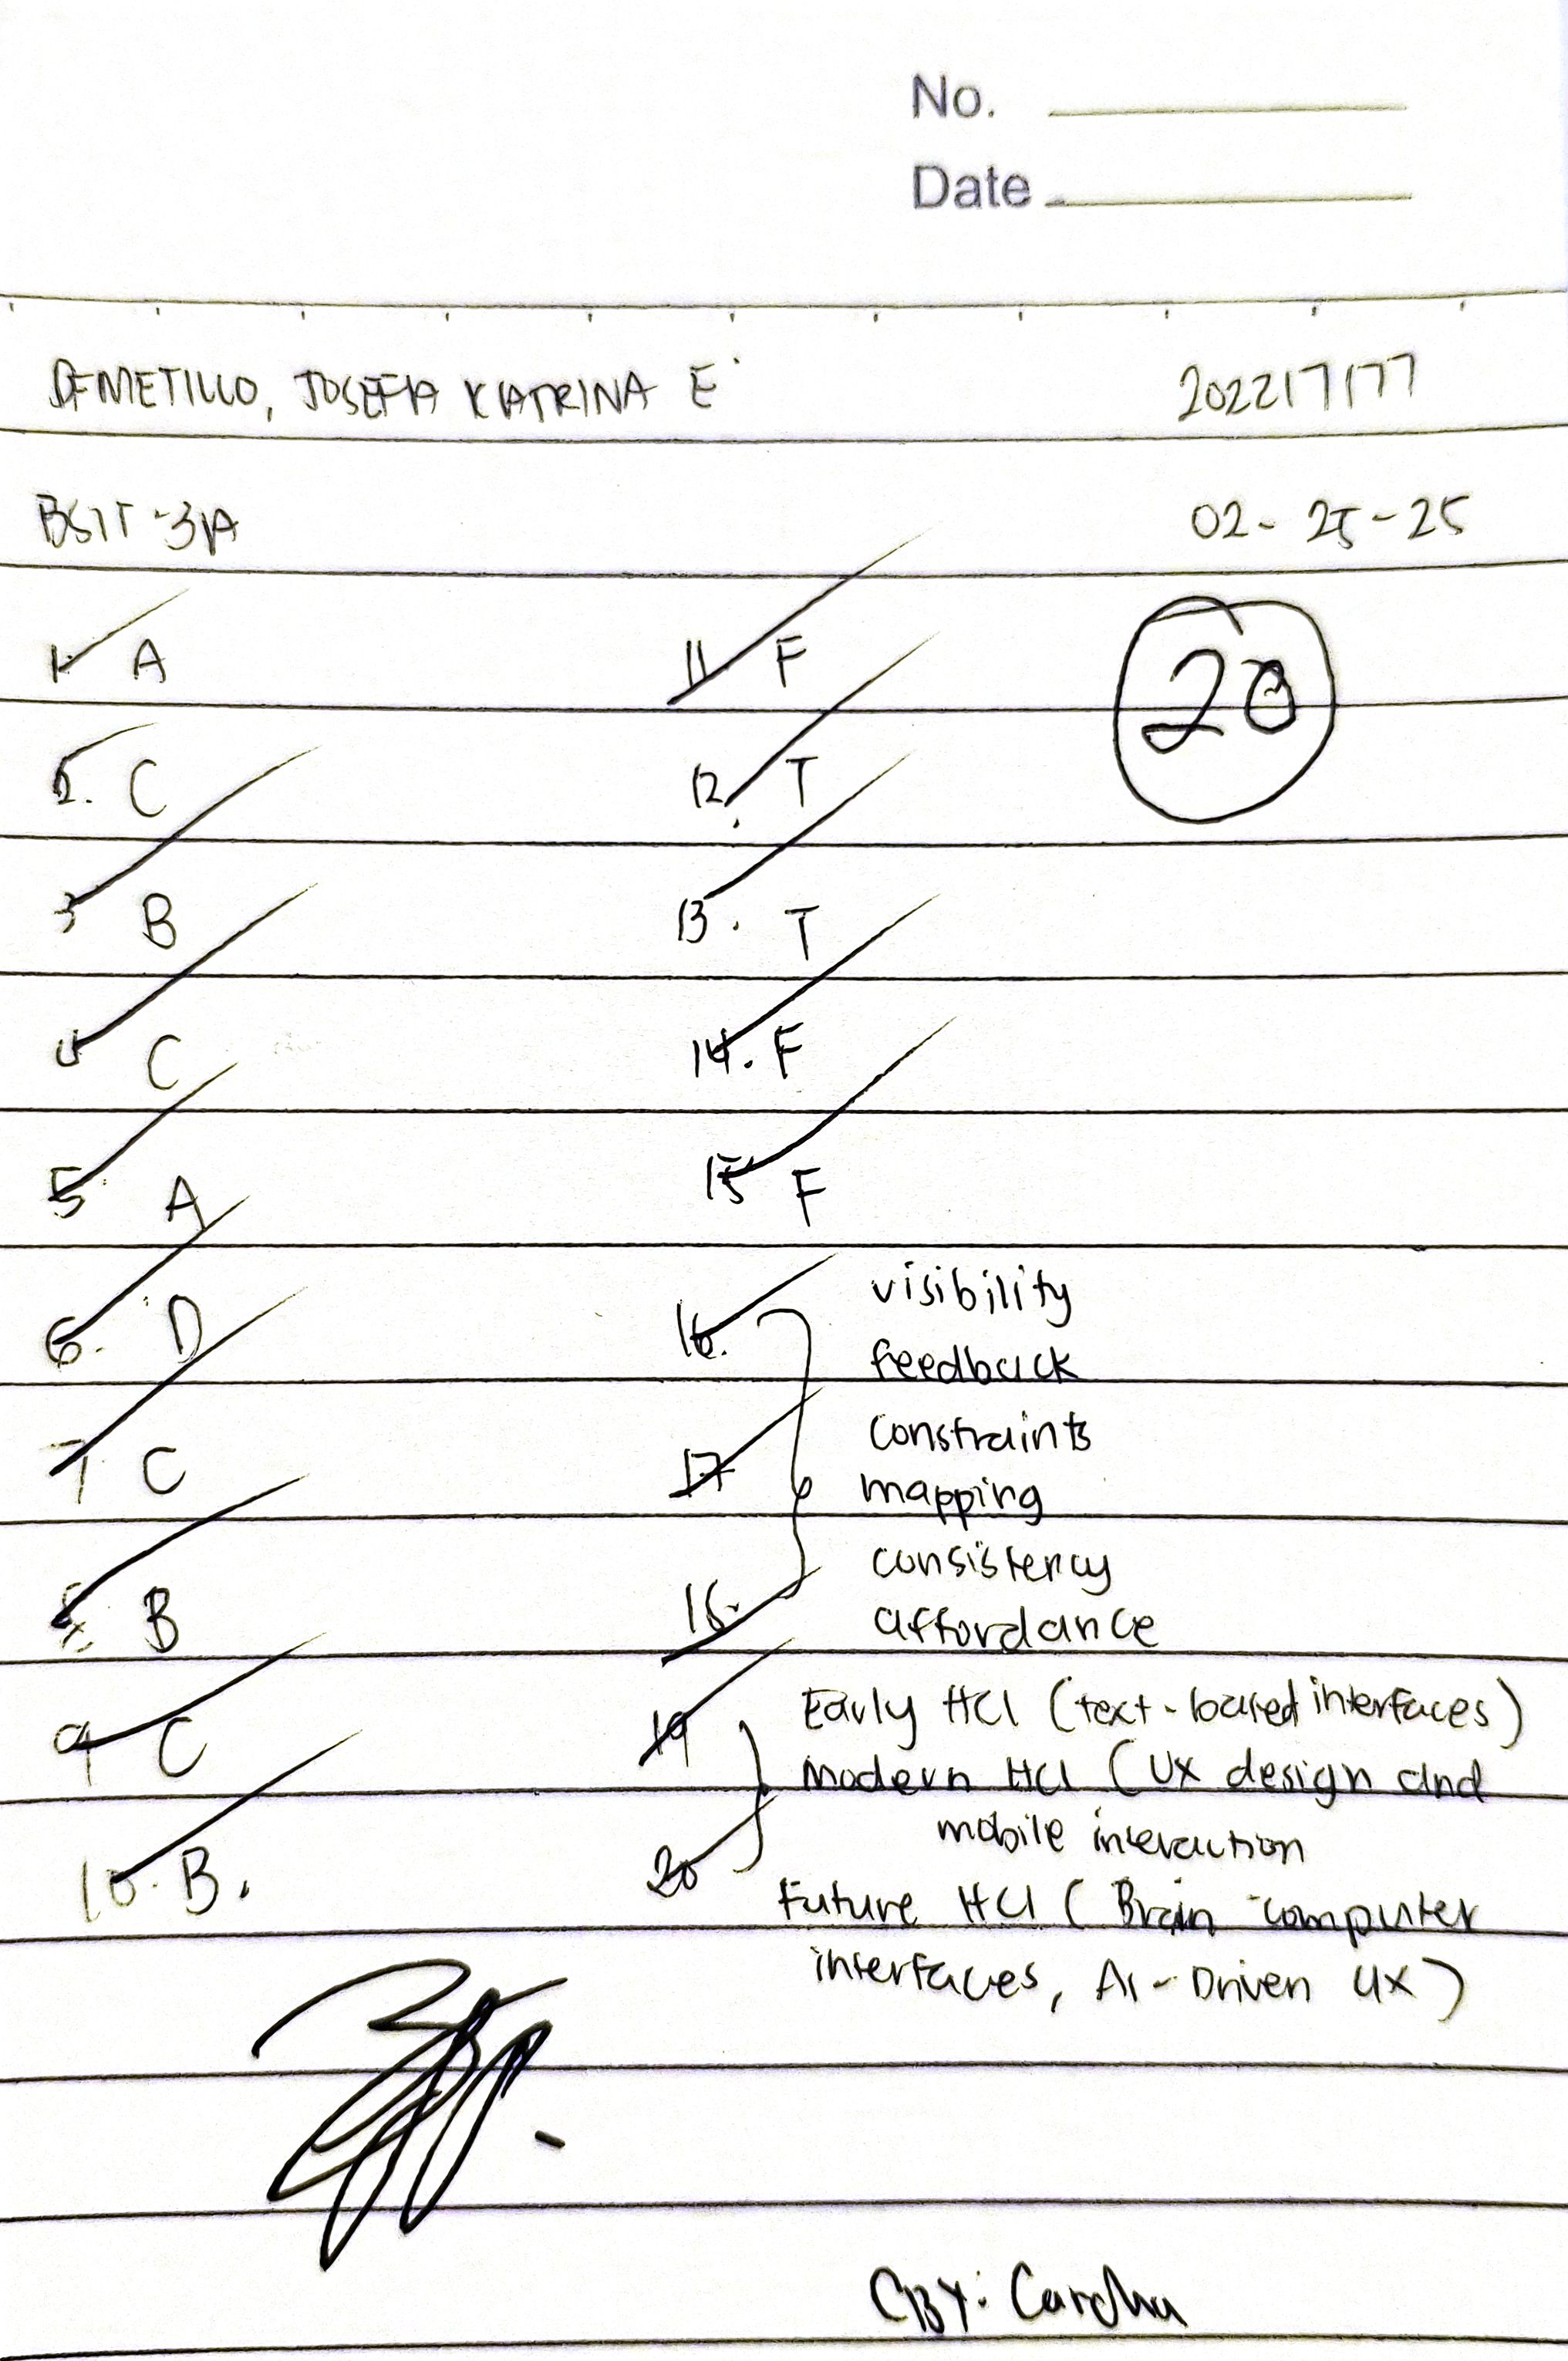 No.
Date
DEMETILLO, JOSEFA KATRINA E. 202217177
BSIT-3A 02-25-25
1. A 11 F 20
2. C 12. T
3 B 13. T
4 C 14. F
5. A 15 F
6. D 16. visibility
feedback
7 C 17 constraints
mapping
8. B 18. consistency
affordance
9 C 19 Early HCI (text-based interfaces)
Modern HCI (UX design and
mobile interaction
10. B. 20 Future HCI (Brain computer
interfaces, AI-Driven UX)
CBY: